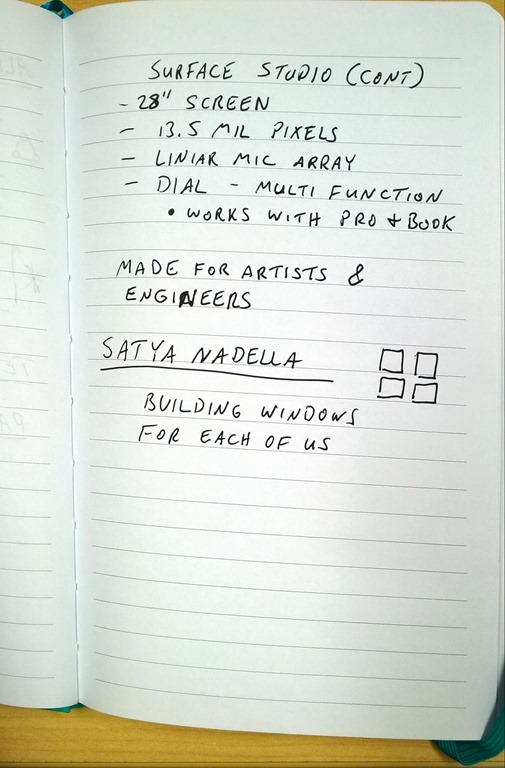 SURFACE STUDIO (CONT)
- 28" SCREEN
- 13.5 MIL PIXELS
- LINIAR MIC ARRAY
- DIAL - MULTI FUNCTION
• WORKS WITH PRO + BOOK
MADE FOR ARTISTS &
ENGINEERS
SATYA NADELLA
BUILDING WINDOWS
FOR EACH OF US